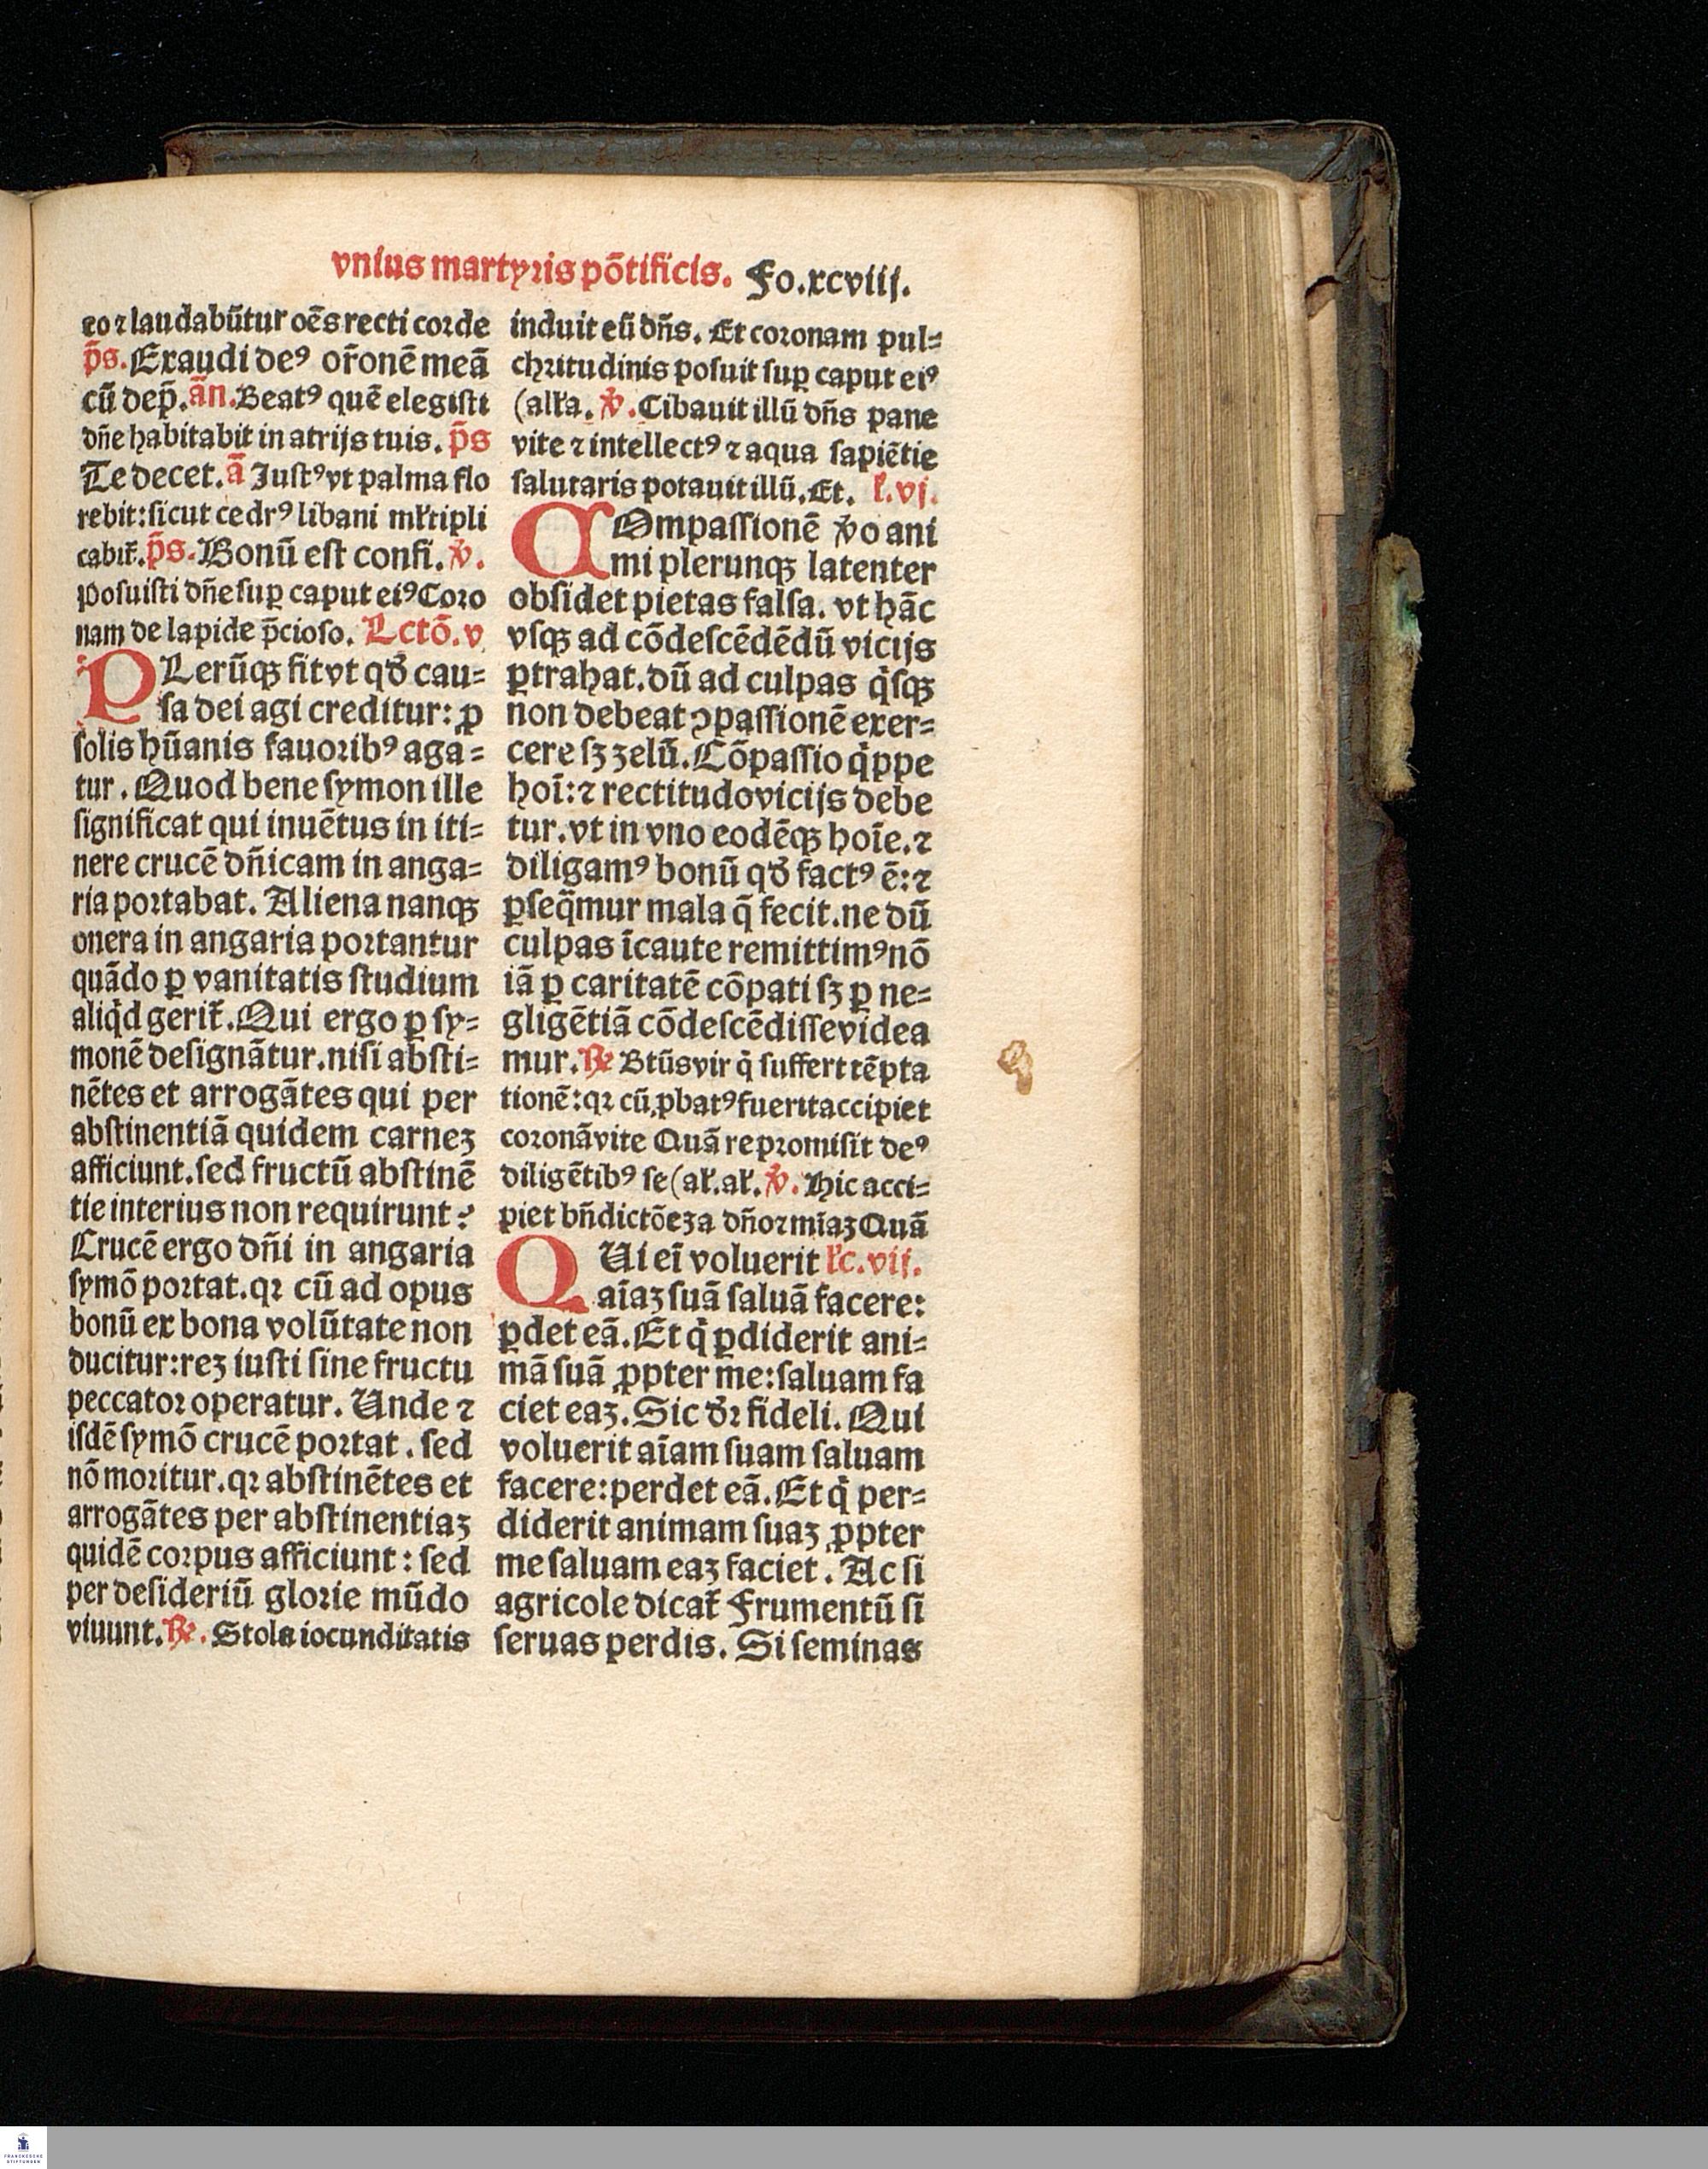 vnius martyris põtificis. Fo.xcviij.
eo ⁊ laudabũtur oẽs recti corde
p̃s. Exaudi deꝰ or̃onẽ meã
cũ dep̃. ãn. Beatꝰ quẽ elegisti
dñe habitabit in atrijs tuis. p̃s
Te decet. ã Iustꝰ vt palma flo
rebit: sicut cedrꝰ libani mĺtipli
cabit̃. p̃s. Bonũ est confi. ꝟ.
Posuisti dñe suꝑ caput eiꝰ Coro
nam de lapide p̃cioso. Lctõ. v
PLerũqꝫ fit vt qđ cau=
sa dei agi creditur: ꝓ
solis hũanis fauoribꝰ aga=
tur. Quod bene symon ille
significat qui inuẽtus in iti=
nere crucẽ dñicam in anga=
ria portabat. Aliena nanqꝫ
onera in angaria portantur
quãdo ꝑ vanitatis studium
aliq̇d gerit̃. Qui ergo ꝑ sy=
monẽ designãtur. nisi absti=
nẽtes et arrogãtes qui per
abstinentiã quidem carneꝫ
afficiunt. sed fructũ abstinẽ
tie interius non requirunt?
Crucẽ ergo dñi in angaria
symõ portat. qꝛ cũ ad opus
bonũ ex bona volũtate non
ducitur: reꝫ iusti sine fructu
peccator operatur. Unde ⁊
isdẽ symõ crucẽ portat. sed
nõ moritur. qꝛ abstinẽtes et
arrogãtes per abstinentiaꝫ
quidẽ corpus afficiunt: sed
per desideriũ glorie mũdo
viuunt. ℞. Stola iocunditatis
induit eũ dñs. Et coronam pul=
chritudinis posuit suꝑ caput eiꝰ
(alĺa. ꝟ. Cibauit illũ dñs pane
vite ⁊ intellectꝰ ⁊ aqua sapiẽtie
salutaris potauit illũ. Et. ĺ. vj.
COmpassionẽ ꝟo ani
mi plerunqꝫ latenter
obsidet pietas falsa. vt hãc
vsqꝫ ad cõdescẽdẽdũ vicijs
ꝑtrahat. dũ ad culpas q̇sqꝫ
non debeat ꝯpassionẽ exer=
cere sꝫ zelũ. Cõpassio q̇ppe
hoĩ: ⁊ rectitudo vicijs debe
tur. vt in vno eodẽqꝫ hoĩe. ⁊
diligamꝰ bonũ qđ factꝰ ẽ: ⁊
ꝑseq̃mur mala q̃ fecit. ne dũ
culpas ĩcaute remittimꝰ nõ
iã ꝑ caritatẽ cõpati sꝫ ꝑ ne=
gligẽtiã cõdescẽdisse videa
mur. ℞ Btũs vir q̇ suffert tẽpta
tionẽ: qꝛ cũ ꝓbatꝰ fuerit accipiet
coronã vite Quã repromisit deꝰ
diligẽtibꝰ se (aĺ. aĺ. ꝟ. Hic acci=
piet bñdictõeꝫ a dño ⁊ mĩaꝫ Quã
QUi eĩ voluerit ĺc. vij.
aĩaꝫ suã saluã facere:
ꝑdet eã. Et q̇ ꝑdiderit ani=
mã suã ꝓpter me: saluam fa
ciet eaꝫ. Sic đꝛ fideli. Qui
voluerit aĩam suam saluam
facere: perdet eã. Et q̇ per=
diderit animam suaꝫ ꝓpter
me saluam eaꝫ faciet. Ac si
agricole dicat̃ Frumentũ si
seruas perdis. Si seminas
FRANCKESCHE
STIFTUNGEN